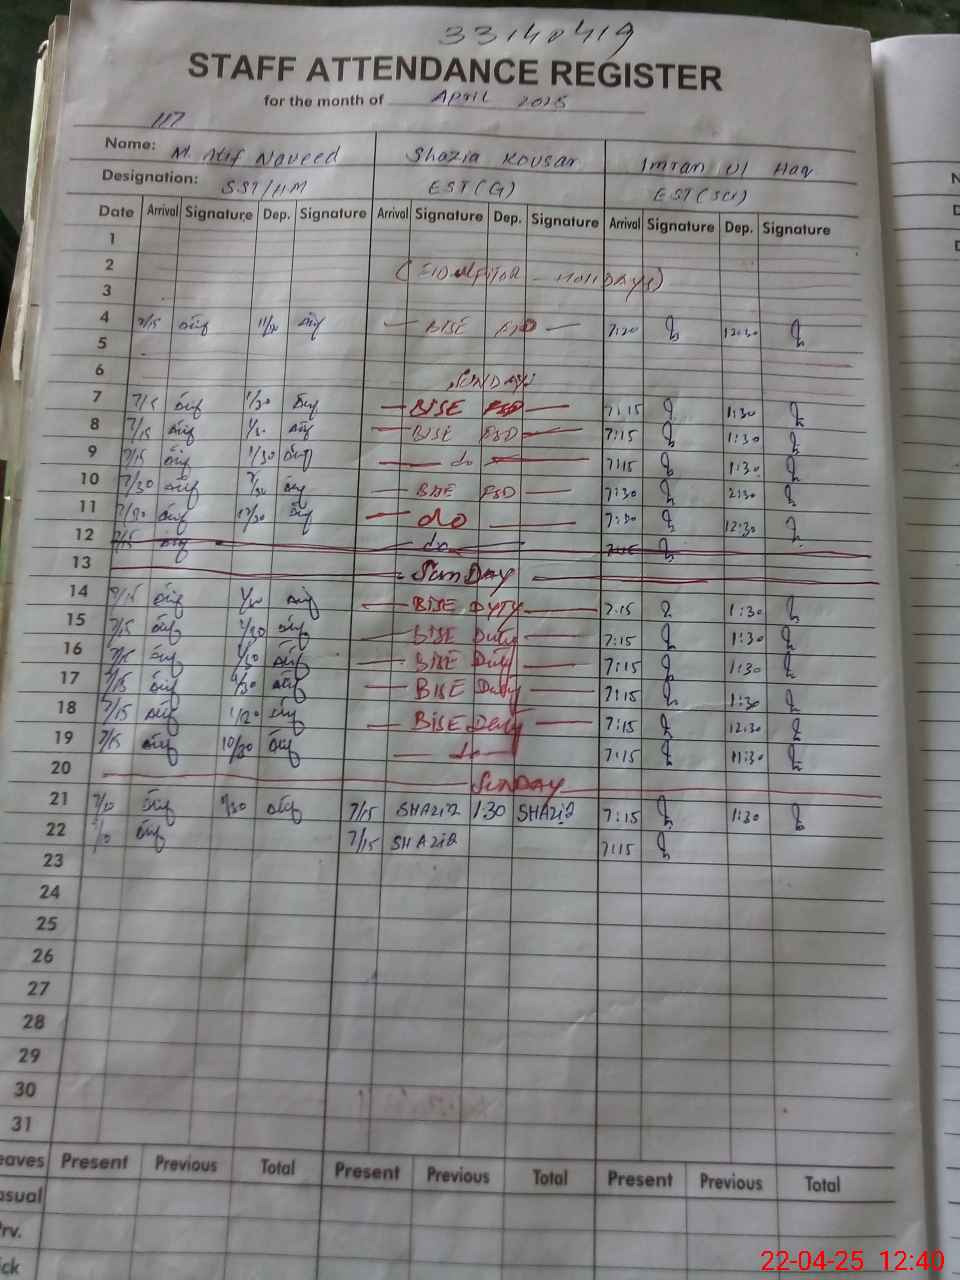 33140419
STAFF ATTENDANCE REGISTER
for the month of April 2025
117
Name: M. Atif Naveed Shazia Kousar Imran Ul Haq
Designation: SST/HM EST(G) EST(SCI)
Date Arrival Signature Dep. Signature Arrival Signature Dep. Signature Arrival Signature Dep. Signature
1
2
3 HOLIDAYS)
4 7/15 11/30 — BISE FSD — 7:20 12:30
5
6 SUNDAY
7 7/15 1/30 — BISE FSD — 7:15 1:30
8 7/15 — BISE FSD — 7:15 1:30
9 7/15 1/30 — do — 7:15 1:30
10 7/30 — BISE FSD — 7:30 2:30
11 12/30 — do — 7:30 12:30
12 7/15 do
13 — SUNDAY —
14 — BISE DUTY — 7:15 1:30
15 7/15 1/30 — BISE Duty — 7:15 1:30
16 7/15 1/30 — BISE Duty — 7:15 1:30
17 7/15 1/30 — BISE Duty — 7:15 1:30
18 7/15 — BISE Duty — 7:15 12:30
19 7/15 10/30 — do — 7:15 11:30
20 SUNDAY
21 7/10 1/30 7/15 SHAZIA 1:30 SHAZIA 7:15 1:30
22 7/10 7/15 SHAZIA 7:15
23
24
25
26
27
28
29
30
31
eaves Present Previous Total Present Previous Total Present Previous Total
asual
rv.
ick
22-04-25 12:40